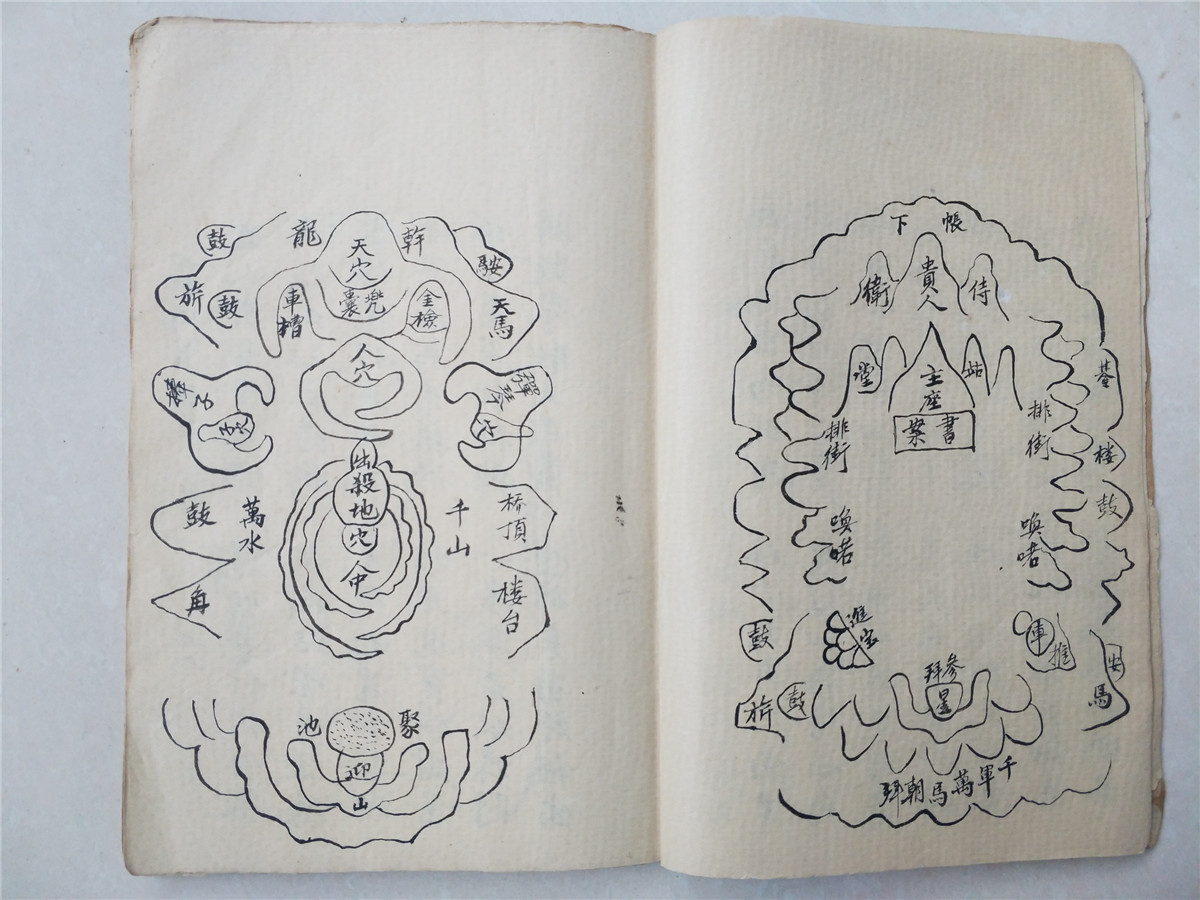 帳下
侍
貴人
衛
站
主座
堂
書案
排衙
排衙
碁
楼
鼓
喚喏
喚喏
推車
安
馬
進宝
鼓
旂
鼓
參拜
星
千軍萬馬朝拜
幹龍
鼓
天穴
鞍
旂
鼓
車槽
兜囊
金檢
天馬
人穴
出殺
地穴
中
萬水
千山
鼓
角
桥頂
楼台
聚池
迎山